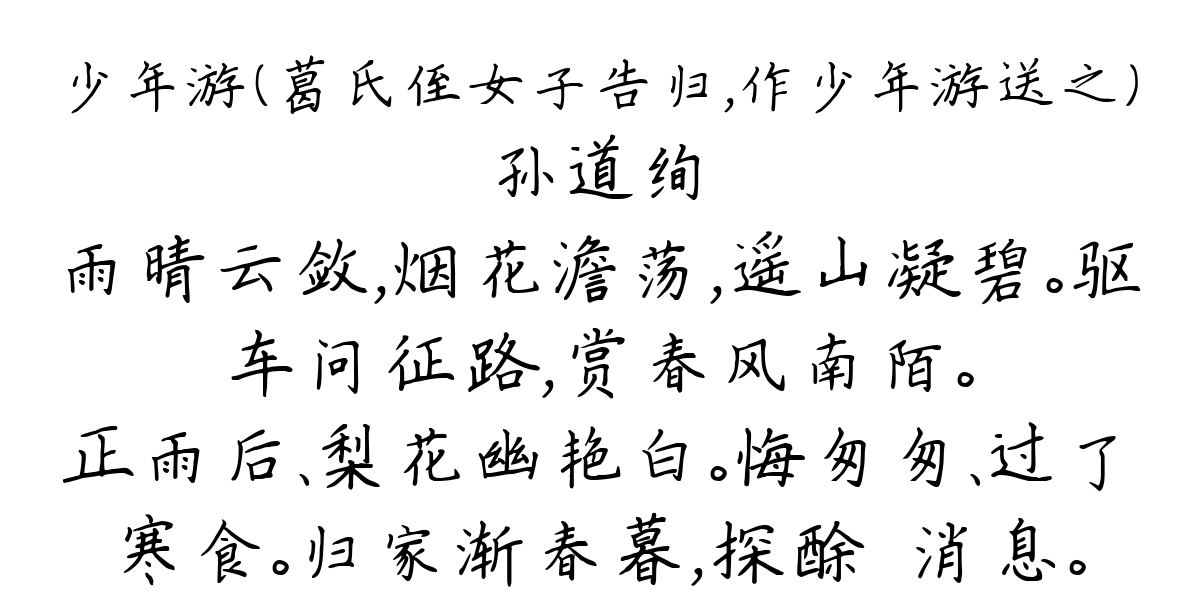 少年游(葛氏侄女子告归,作少年游送之)
孙道绚
雨晴云敛,烟花澹荡,遥山凝碧。驱
车问征路,赏春风南陌。
正雨后、梨花幽艳白。悔匆匆、过了
寒食。归家渐春暮,探酴 消息。